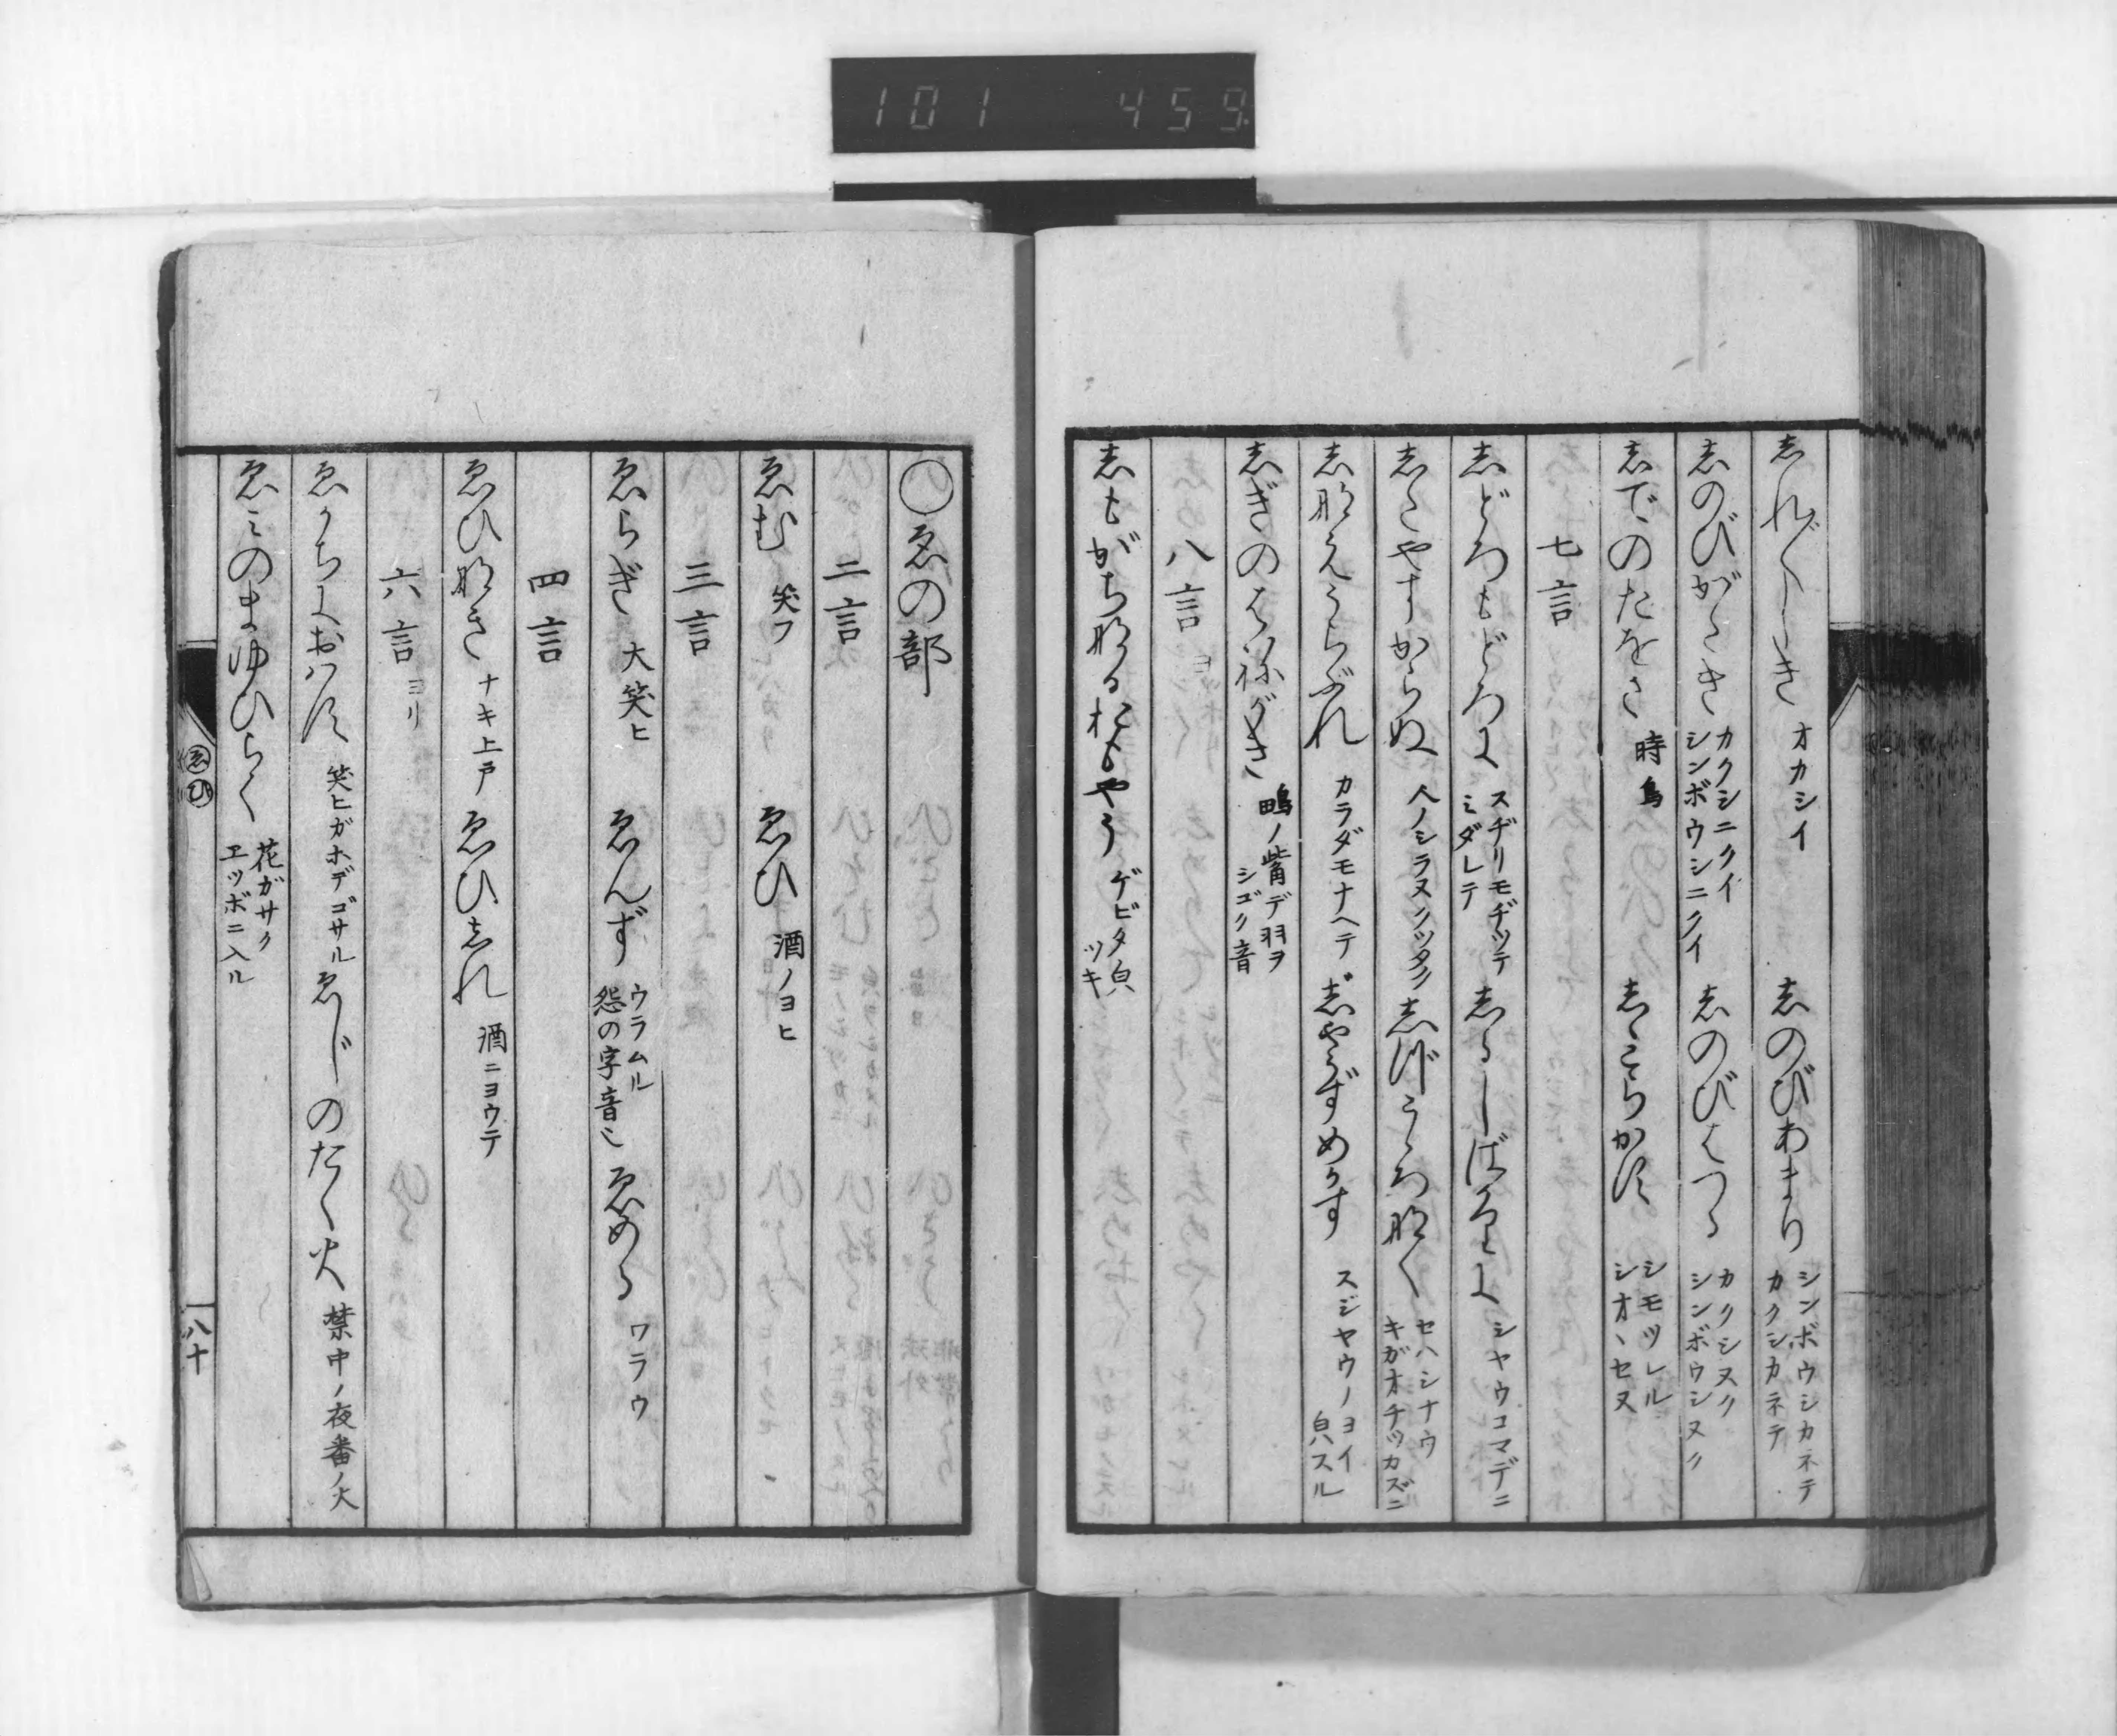 101 459
志れ〴〵しき オカシイ 志のびあまり シンボウシカネテ カクシカネテ
志のびがたき カクシニクイ シンボウシニクイ 志のびはつる カクシヌク シンボウシヌク
志でのたをさ 時鳥 志たゝらか須 シモツレル シオヽセヌ
七言
志どろもどろに スヂリモヂツテ ミダレテ 志るしばかりに シヤウコマデニ
志たやすからぬ 人ノシラヌクツタク 志づこゝろ那く セハシナウ キガオチツカズニ
志那えうらぶれ カラダモナヘテ 志やうずめかす スジヤウノヨイ 皃スル
志ぎのはねがき 鴫ノ嘴デ羽ヲ シゴク音
八言 ヨ
志もがち那るおもやう ゲビタ皃 ツキ
〇ゑの部
二言
ゑむ 笑フ ゑひ 酒ノヨヒ
三言
ゑらぎ 大笑ヒ ゑんず ウラムル 怨の字音也 ゑめる ワラウ
四言
ゑひ那き ナキ上戸 ゑひ志れ 酒ニヨウテ
六言 ヨリ
ゑがちにおハ須 笑ヒガホデゴサル ゑじのたく火 禁中ノ夜番ノ火
ゑみのまゆひらく 花ガサク ヱツボニ入ル
ゑ ひ
八十一